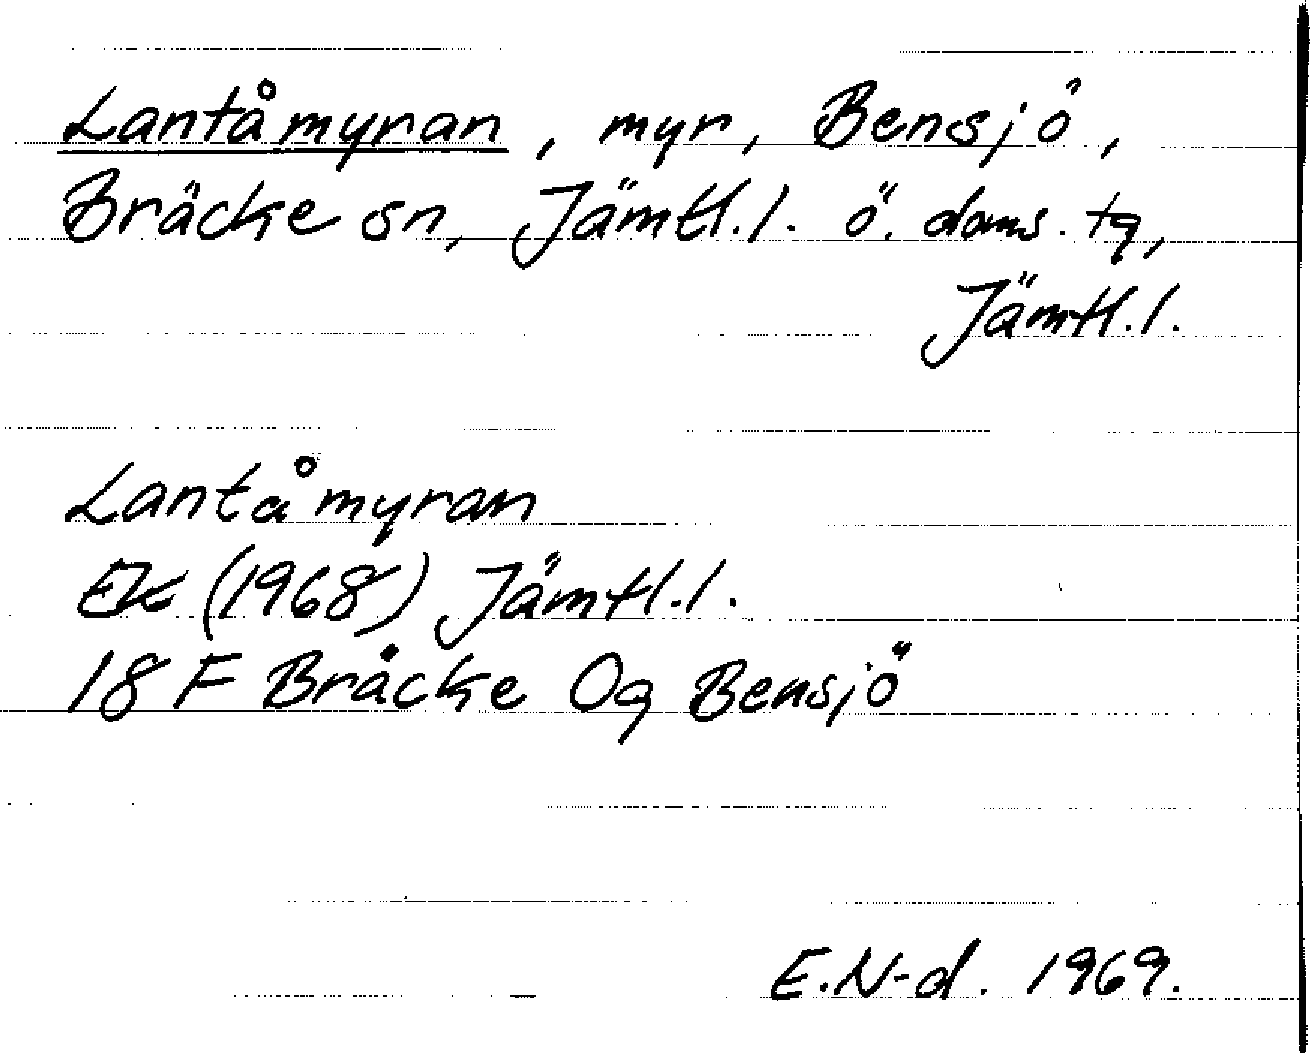 Lantåmyran, myr, Bensjö,
Bräcke sn, Jämtl.l. ö. doms. tg,
Jämtl.l.
Lantåmyran
Ek (1968) Jämtl.l.
18 F Bräcke Og Bensjö
E.N-d. 1969.